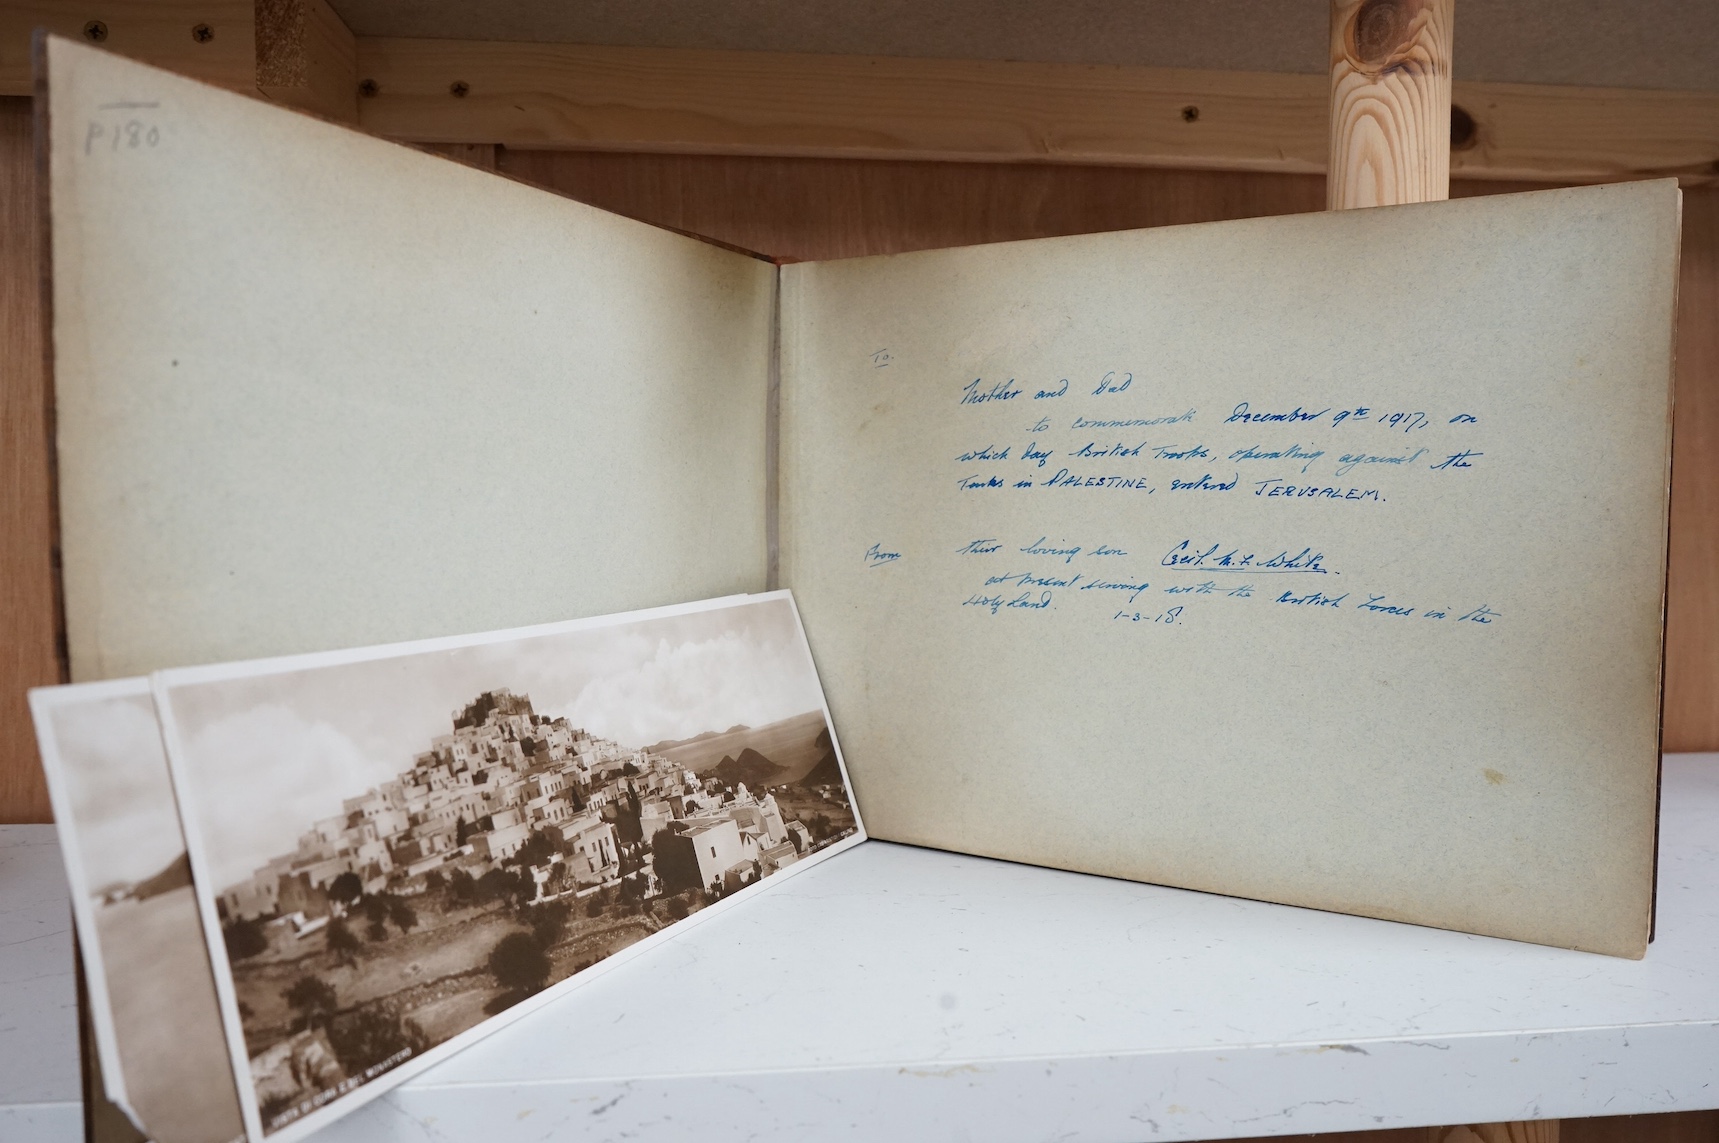 P180
To.
Mother and Dad
to commemorate December 9th 1917, on
which day British Troops, operating against the
Turks in PALESTINE, entered JERUSALEM.
From their loving son Cecil. M. F. White.
at present serving with the British Forces in the
Holy Land. 1-3-18.
VISTA DI CORA E DEL MONASTERO